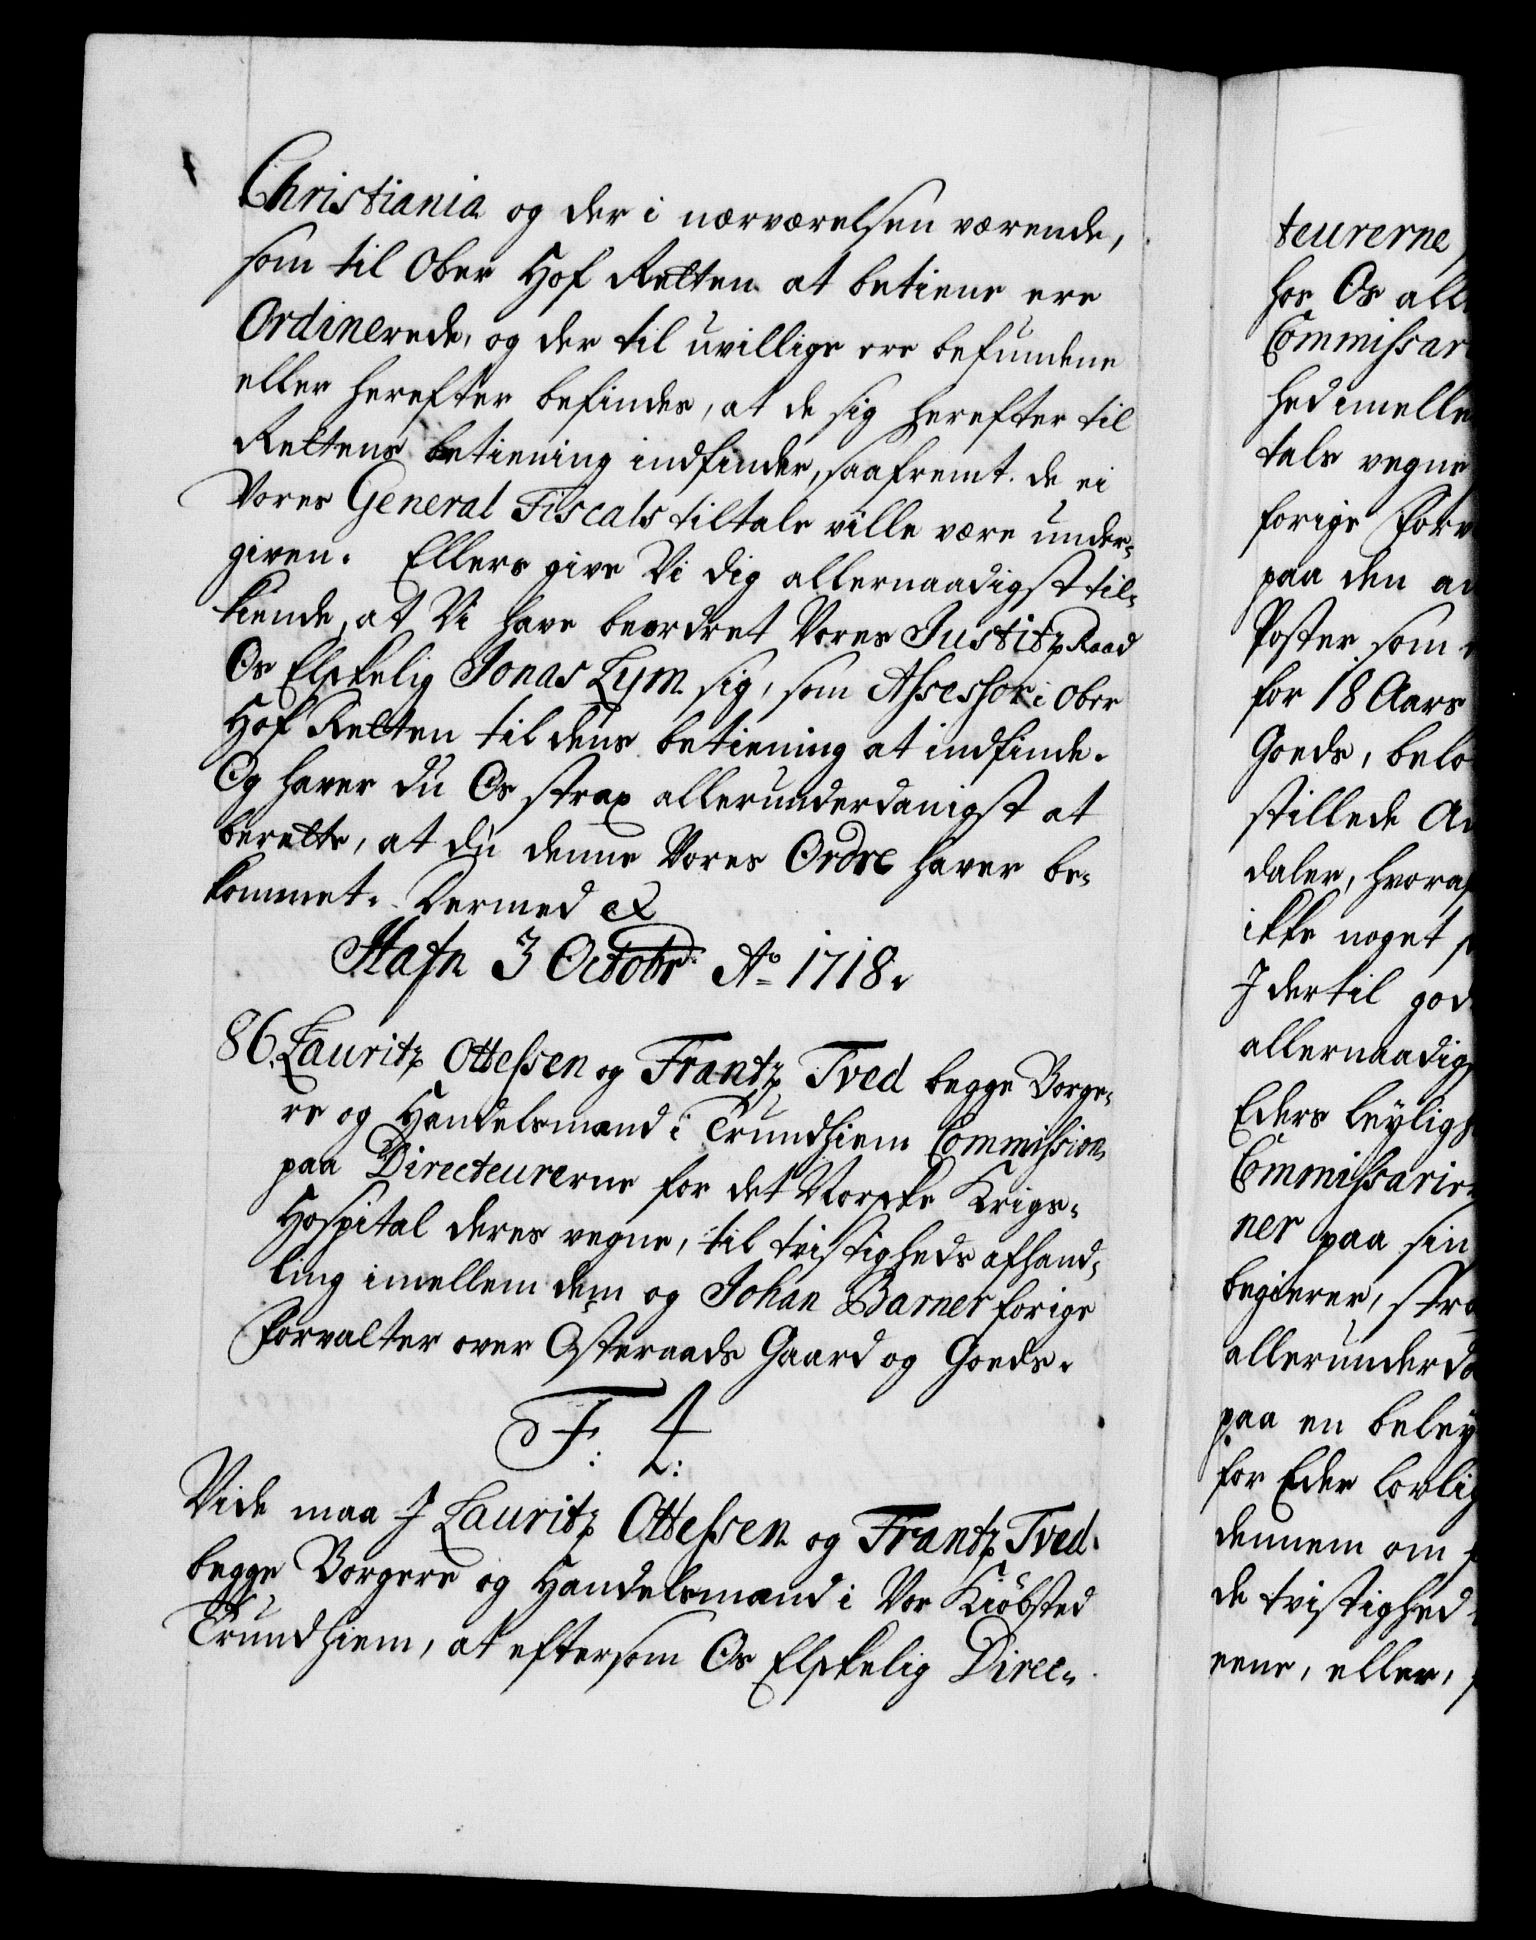 Christiania og der i nærværelsen værende,
som til Ober Hof Retten at betiene ere
Ordinerede, og der til uvillige ere befundene
eller herefter befindes, at de sig herefter til
Rettens betiening indfinder, saafremt de ei
Vores General Fiscals tiltale ville være under-
given. Ellers give Vi dig allernaadigst til-
kiende, at Vi have beordret Vores Justitz Raad
Os Elskelig Jonas Lym sig, som Assessor i Ober
Hof Retten til dens betiening at indfinde.
Og haver du Os strax allerunderdanigst at
berette, at du denne Vores Ordre haver be-
kommet. Dermed &
Hafn 3 Octobr: Ao 1718.
86. Lauritz Ottessen og Frantz Tved begge Borge-
re og Handelsmænd i Trundhiem Commission
paa Directeurerne for det Norske Krigs-
Hospital deres vegne, til tvistigheds afhand-
ling imellem dem og Johan Barner forige
Forvalter over Østeraads Gaard og Goeds.
F: 4:
Vide maa J Lauritz Ottessen og Frantz Tved
begge Borgere og Handelsmænd i Vor Kiöbsted
Trundhiem, at eftersom Os Elskelig Direc-
teurerne
hos Os all
Commissar
hed imelle
tals vegne
forige Forv
paa den a
Poster som
for 18 Aars
Goeds, belø
stillede A
daler, hvoraf
ikke noget
J dertil god
allernaadigs
Eders leyligh
Commissarie
ner paa sin
begierer, stra
allerunderda
paa en beley
for Eder lovlig
dennem om
de tvistighed
eene, eller,